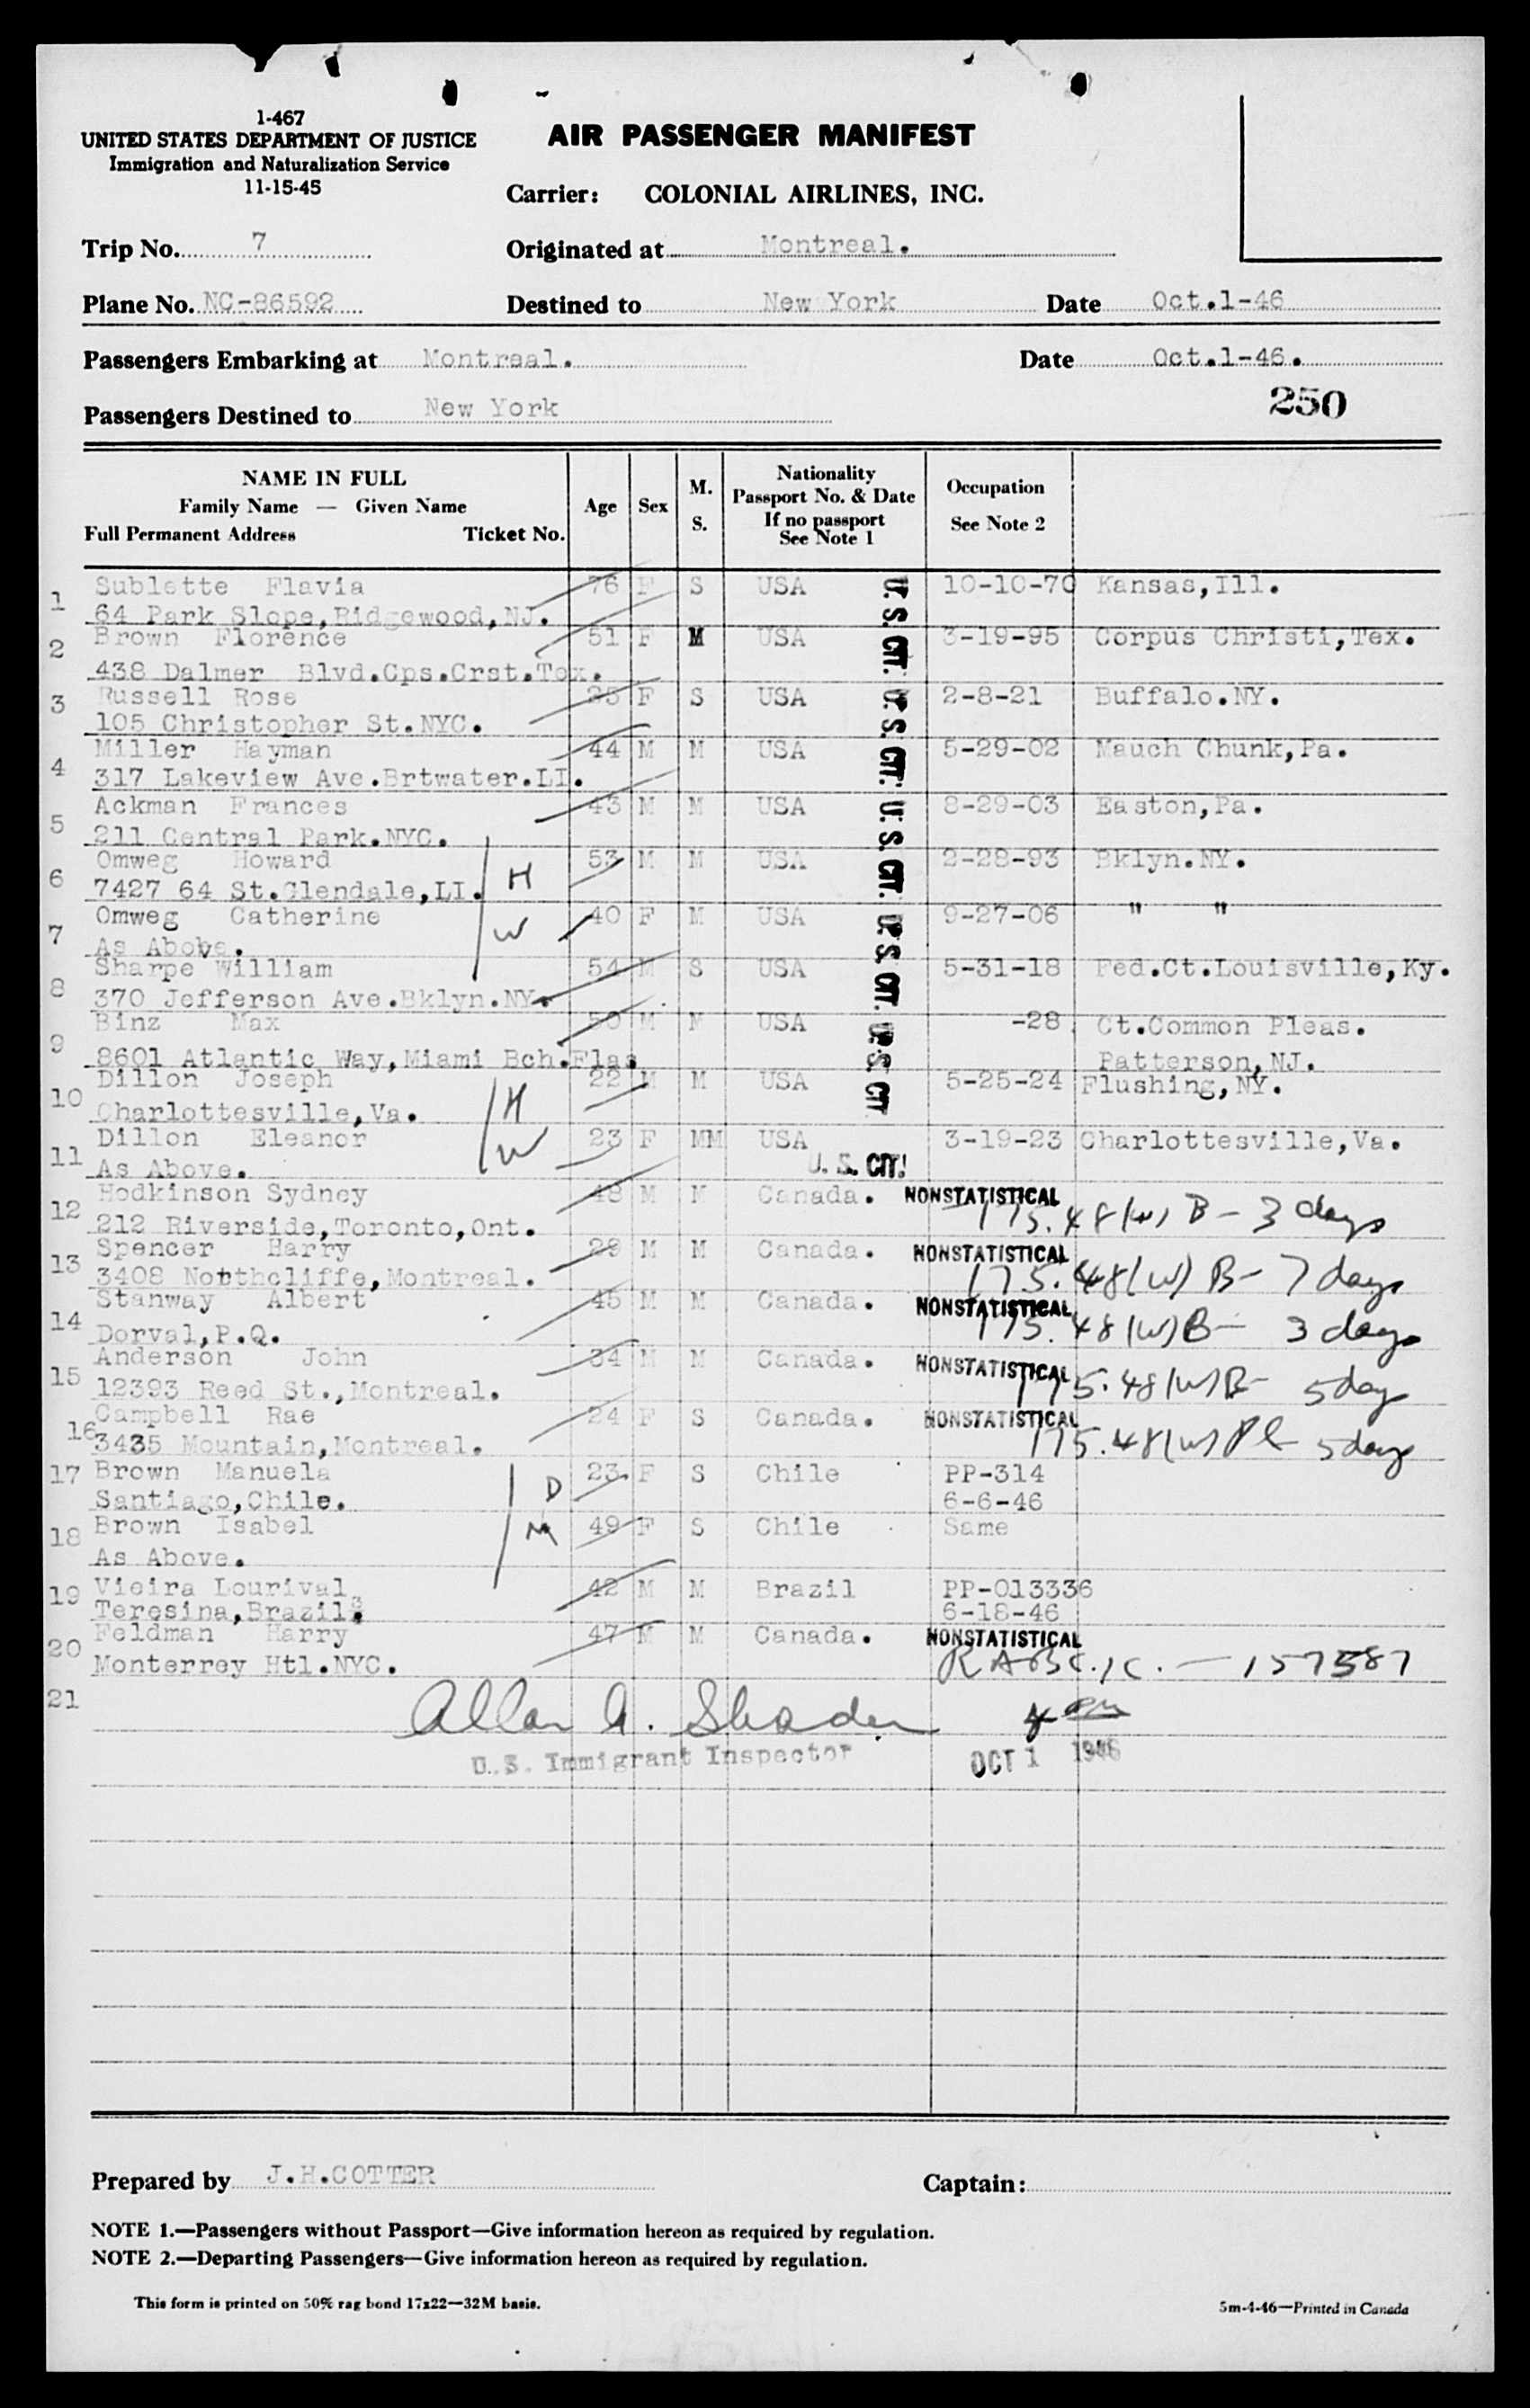 1-467
UNITED STATES DEPARTMENT OF JUSTICE
Immigration and Naturalization Service
11-15-45
AIR PASSENGER MANIFEST
Carrier: COLONIAL AIRLINES, INC.
Trip No. 7 Originated at Montreal.
Plane No. NC-86592 Destined to New York Date Oct.1-46
Passengers Embarking at Montreal. Date Oct.1-46.
Passengers Destined to New York 250
NAME IN FULL
Family Name — Given Name
Full Permanent Address Ticket No.
Age Sex M. S.
Nationality
Passport No. & Date
If no passport
See Note 1
Occupation
See Note 2
1 Sublette Flavia 76 F S USA U. S. CIT. 10-10-70 Kansas,Ill.
64 Park Slope,Ridgewood,NJ.
2 Brown Florence 51 F M USA 3-19-95 Corpus Christi,Tex.
438 Dalmer Blvd.Cps.Crst.Tex.
3 Russell Rose 25 F S USA U. S. CIT. 2-8-21 Buffalo.NY.
105 Christopher St.NYC.
4 Miller Hayman 44 M M USA 5-29-02 Mauch Chunk,Pa.
317 Lakeview Ave.Brtwater.LI.
5 Ackman Frances 43 M M USA U. S. CIT. 8-29-03 Easton,Pa.
211 Central Park.NYC.
6 Omweg Howard H 53 M M USA 2-28-93 Bklyn.NY.
7427 64 St.Glendale,LI.
7 Omweg Catherine W 40 F M USA U. S. CIT. 9-27-06 " "
As Above.
8 Sharpe William 54 M S USA 5-31-18 Fed.Ct.Louisville,Ky.
370 Jefferson Ave.Bklyn.NY.
9 Binz Max 50 M M USA U. S. CIT -28 Ct.Common Pleas.
8601 Atlantic Way,Miami Bch.Flas. Patterson,NJ.
10 Dillon Joseph H 22 M M USA 5-25-24 Flushing,NY.
Charlottesville,Va.
11 Dillon Eleanor W 23 F MM USA 3-19-23 Charlottesville,Va.
As Above. U. S. CIT.
12 Hodkinson Sydney 48 M M Canada. NONSTATISTICAL
212 Riverside,Toronto,Ont. 175.48(w) B- 3 days
13 Spencer Harry 29 M M Canada. NONSTATISTICAL
3408 Notthcliffe,Montreal. 175.48(w) B- 7 days
14 Stanway Albert 45 M M Canada. NONSTATISTICAL
Dorval,P.Q. 175.48(w) B- 3 days
15 Anderson John 34 M M Canada. NONSTATISTICAL
12393 Reed St.,Montreal. 175.48(w) B- 5 days
16 Campbell Rae 24 F S Canada. NONSTATISTICAL
3435 Mountain,Montreal. 175.48(w) Pl- 5 days
17 Brown Manuela D 23 F S Chile PP-314
Santiago,Chile. 6-6-46
18 Brown Isabel M 49 F S Chile Same
As Above.
19 Vieira Lourival 42 M M Brazil PP-013336
Teresina,Brazil. 6-18-46
20 Feldman Harry 47 M M Canada. NONSTATISTICAL
Monterrey Htl.NYC. 157587
21
Allan A. Shader 4 pm
U.S. Immigrant Inspector OCT 1 1946
Prepared by J.H.COTTER Captain:
NOTE 1.—Passengers without Passport—Give information hereon as required by regulation.
NOTE 2.—Departing Passengers—Give information hereon as required by regulation.
This form is printed on 50% rag bond 17x22—32M basis. 5m-4-46—Printed in Canada